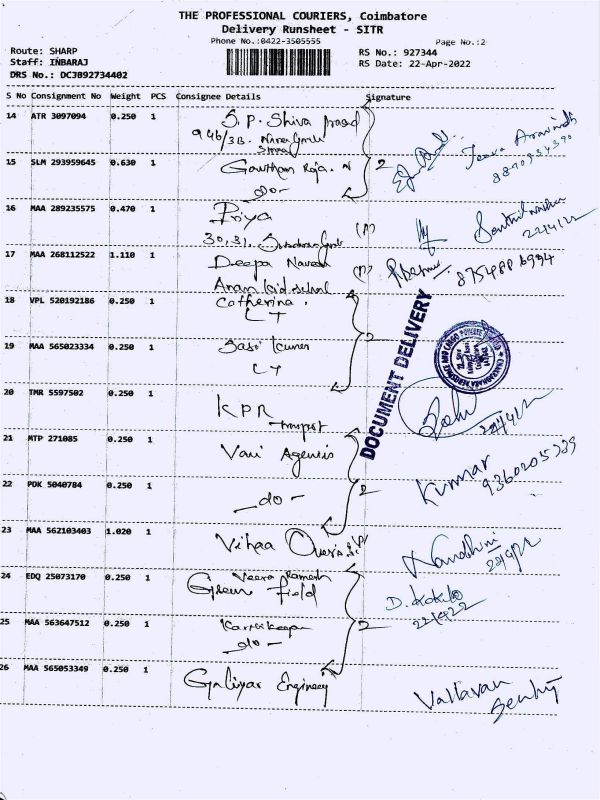 THE PROFESSIONAL COURIERS, Coimbatore
Delivery Runsheet - SITR
Phone No.:0422-3505555
Page No.:2
Route: SHARP
Staff: INBARAJ
DRS No.: DCJB92734402
RS No.: 927344
RS Date: 22-Apr-2022
S No Consignment No Weight PCS Consignee Details Signature
14 ATR 3097094 0.250 1 S.P. Shiva prasad
946/3B.
15 SLM 293959645 0.630 1 Gowtham Raja. N
-do-
2
8870934390
16 MAA 289235575 0.470 1 Priya
30,31,
22/4/22
17 MAA 268112522 1.110 1 Deepa Naresh
8754886994
18 VPL 520192186 0.250 1 Catherina.
LT
19 MAA 565023334 0.250 1 Sasi Kumar
LT
2
DOCUMENT DELIVERY
20 TMR 5597502 0.250 1 KPR
Transport
22/4/22
21 MTP 271085 0.250 1 Vani Agencies
22 PDK 5040784 0.250 1 -do-
2
Kumar
9360205339
23 MAA 562103403 1.020 1 Vihaa
Nandhini
22/4/22
24 EDQ 25073170 0.250 1 Veera Ramesh
Green Field
D. Kokila
22/4/22
25 MAA 563647512 0.250 1 Karthikeyan
-do-
2
26 MAA 565053349 0.250 1 Galiyar Engineey